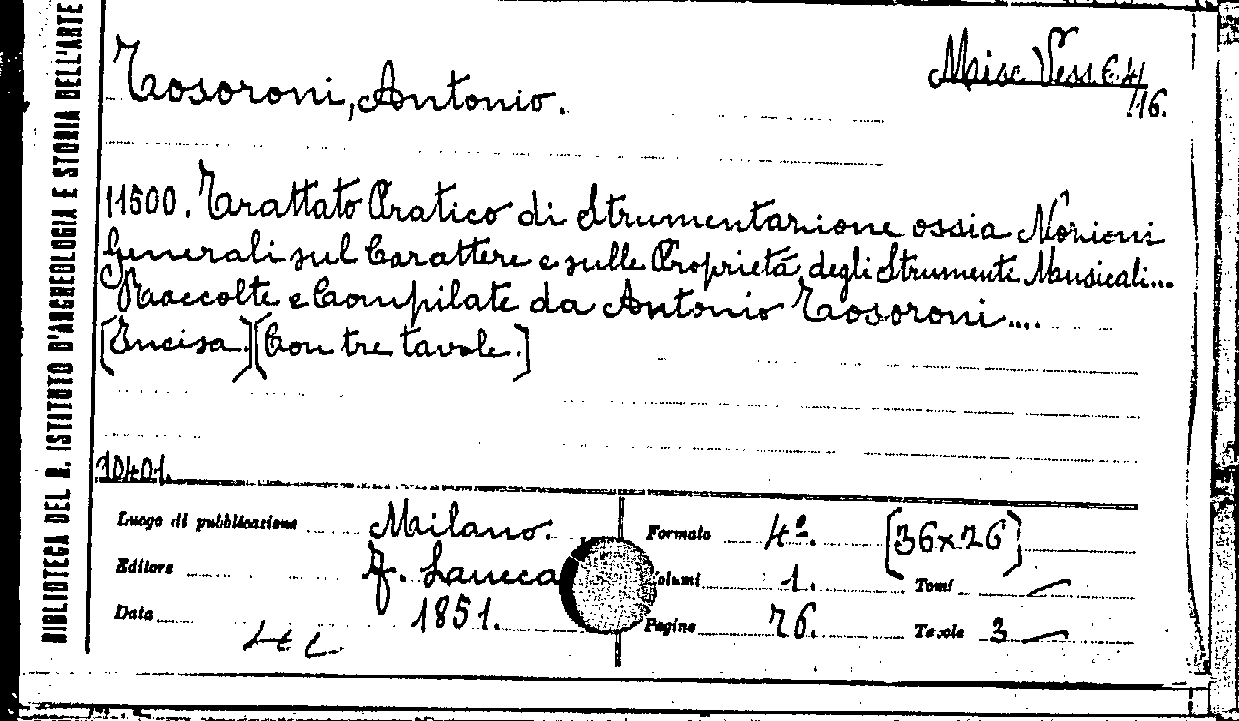 BIBLIOTECA DEL R. ISTITUTO D'ARCHEOLOGIA E STORIA DELL'ARTE
Tosoroni, Antonio.
Misc Vess. E 4/
/16.
11600. Trattato Pratico di Strumentazione ossia Nozioni
Generali sul Carattere e sulle Proprietá degli Strumenti Musicali...
Raccolte e Compilate da Antonio Tosoroni....
[Incisa.] [Con tre tavole.]
10401.
Luogo di pubblicazione Milano. Formato 4º. [36x26]
Editore F. Lucca Volumi 1. Tomi —
Data 1851. Pagine 76. Tavole 3 —